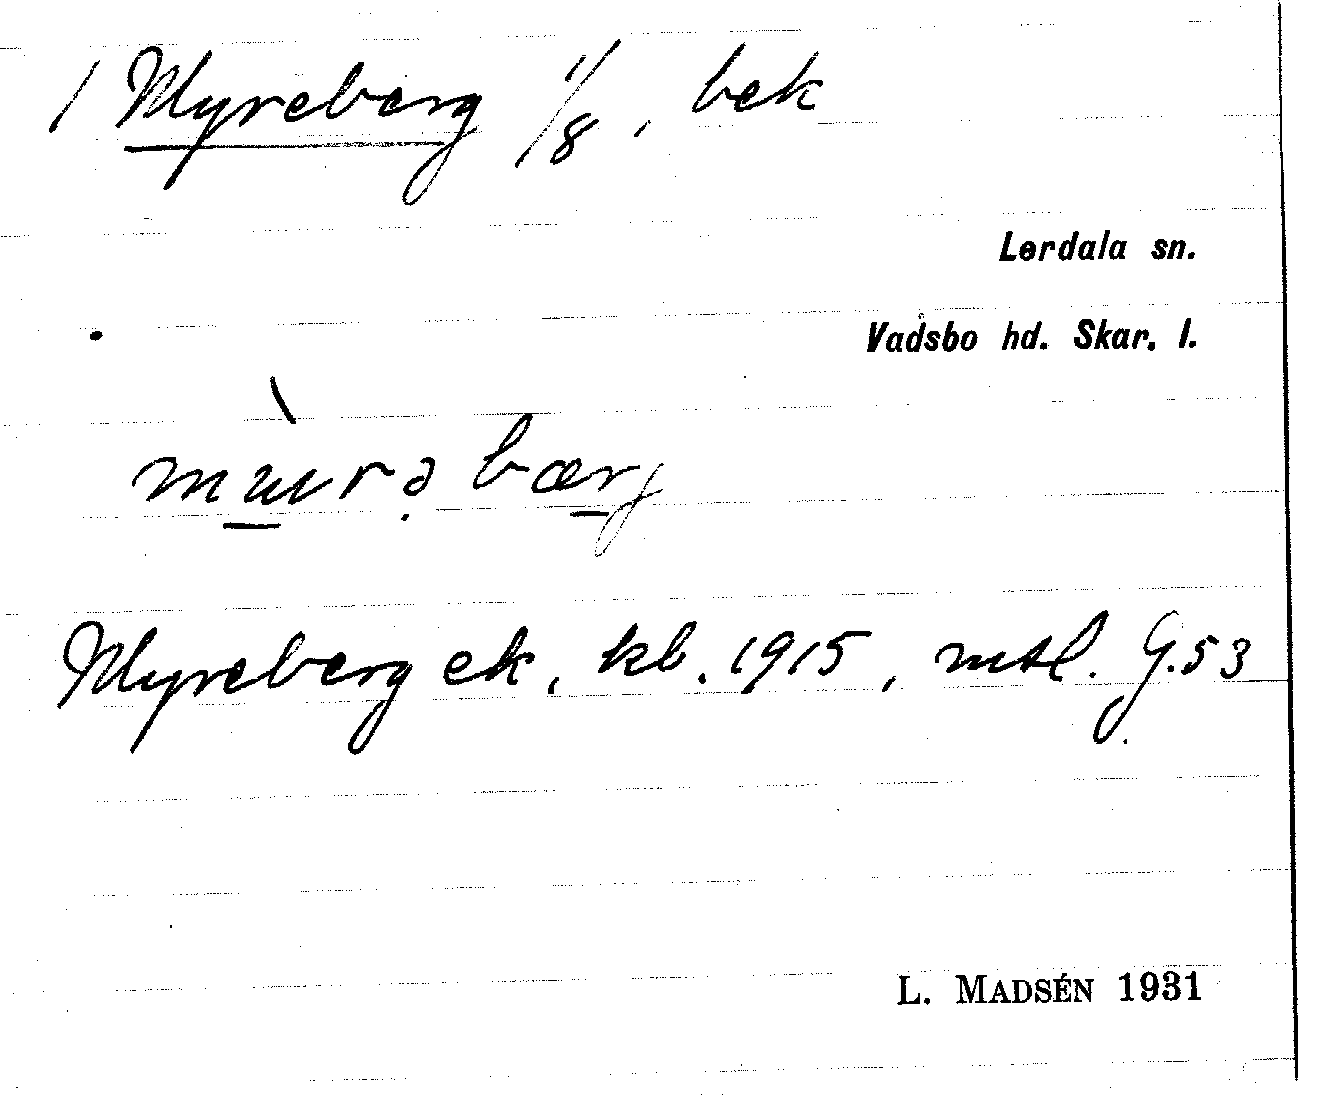 1 Myreberg 1/8, bek
Lerdala sn.
Vadsbo hd. Skar. l.
Myreberg ek, kb. 1915, mtl. G. 53
L. MADSÉN 1931